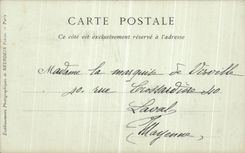 CARTE POSTALE
Ce côté est exclusivement réservé à l'adresse
Madame la marquise de Viroville
40. rue Crossardière 40
Laval
Mayenne
Etablissements Photographiques de NEURDEIN Frères. — Paris